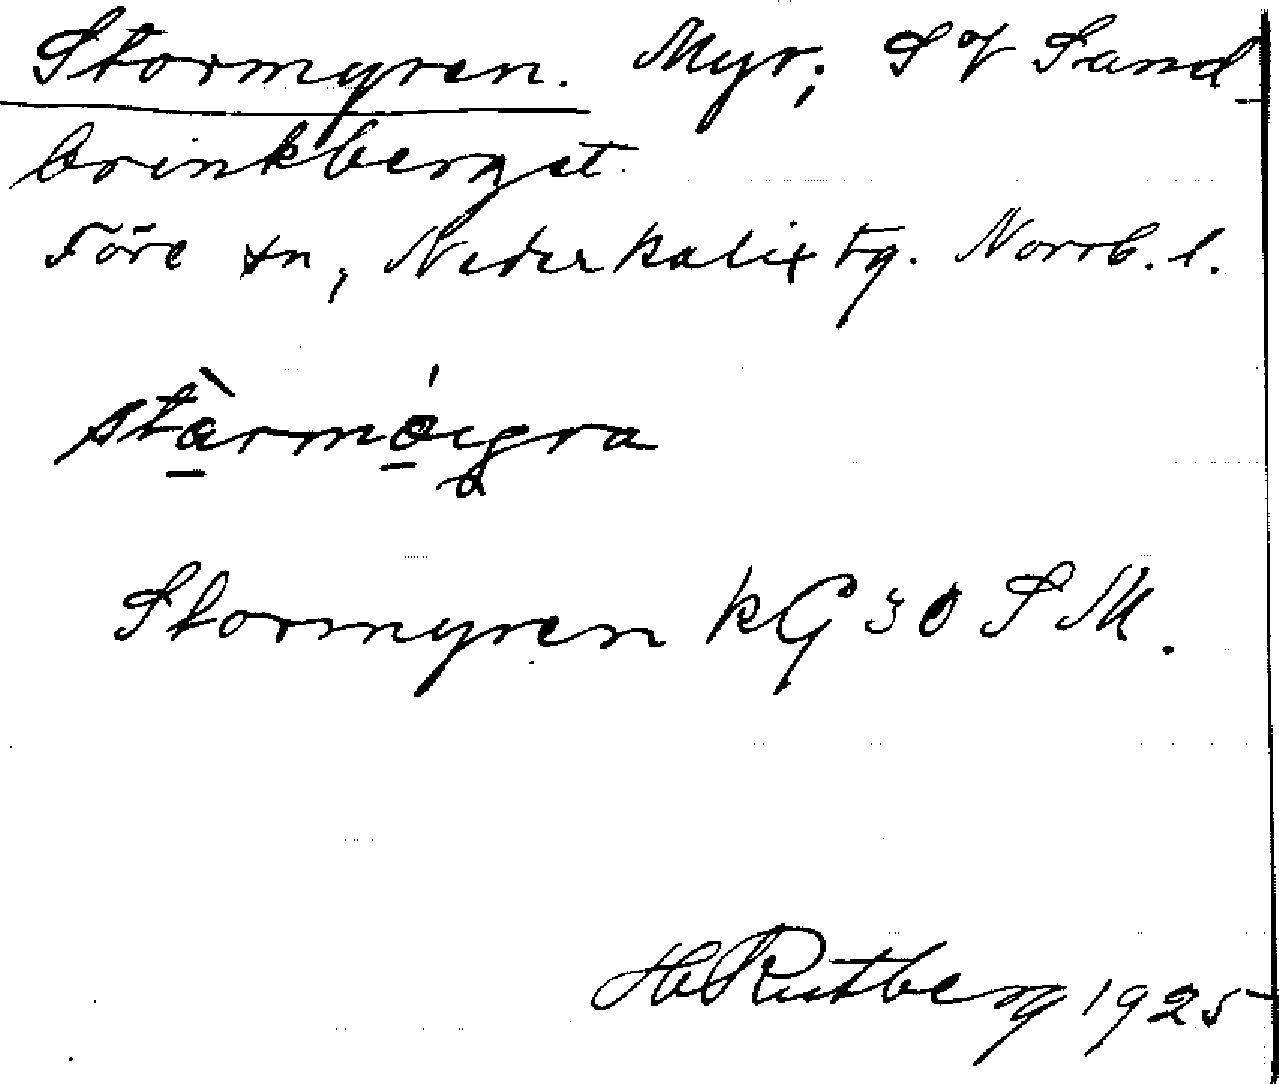 Stormyren. Myr, S of Sand-
brinkberget.
Töre sn, Nederkalix tg. Norrb. l.
Stormyren kG 30 S M.
H Rutberg 1925